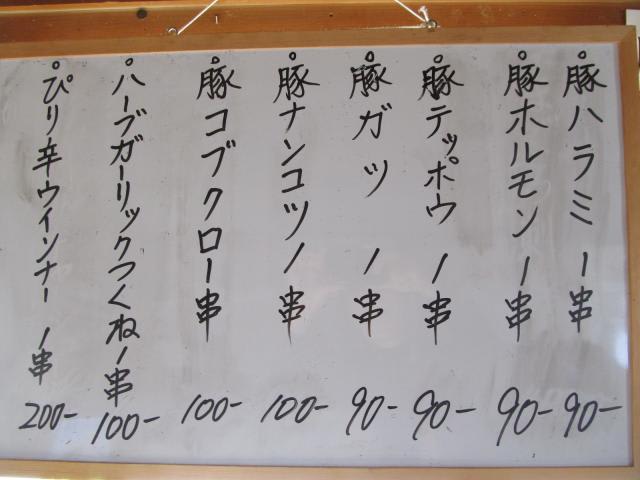 豚ハラミ 1串 90-
豚ホルモン 1串 90-
豚テッポウ 1串 90-
豚ガツ 1串 90-
豚ナンコツ 1串 100-
豚コブクロ 1串 100-
ハーブガーリックつくね 1串 100-
ぴり辛ウインナー 1串 200-